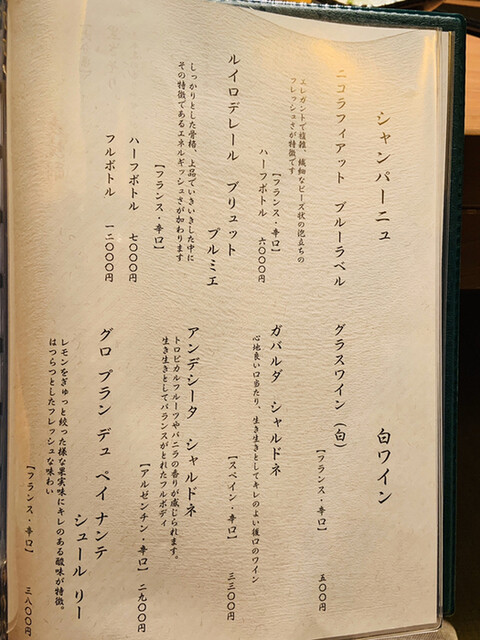 シャンパーニュ
ニコラフィアット ブルーラベル
エレガントで複雑、繊細なビーズ状の泡立ちの
フレッシュさが特徴です
【フランス・辛口】
ハーフボトル 六〇〇〇円
ルイロデレール ブリュット
プルミエ
しっかりとした骨格、上品でいきいきした中に
その特徴であるエネルギッシュさが加わります
【フランス・辛口】
ハーフボトル 七〇〇〇円
フルボトル 一二〇〇〇円
白ワイン
グラスワイン（白）
【フランス・辛口】
五〇〇円
ガバルダ シャルドネ
心地良い口当たり、生き生きとしてキレのよい後口のワイン
【スペイン・辛口】 三三〇〇円
アンデシータ シャルドネ
トロピカルフルーツやバニラの香りが感じられます。
生き生きとしてバランスがとれたフルボディ
【アルゼンチン・辛口】 二九〇〇円
グロ プラン デュ ペイ ナンテ
シュール リー
レモンをぎゅっと絞った様な果実味にキレのある酸味が特徴。
はつらつとしたフレッシュな味わい
【フランス・辛口】 三八〇〇円